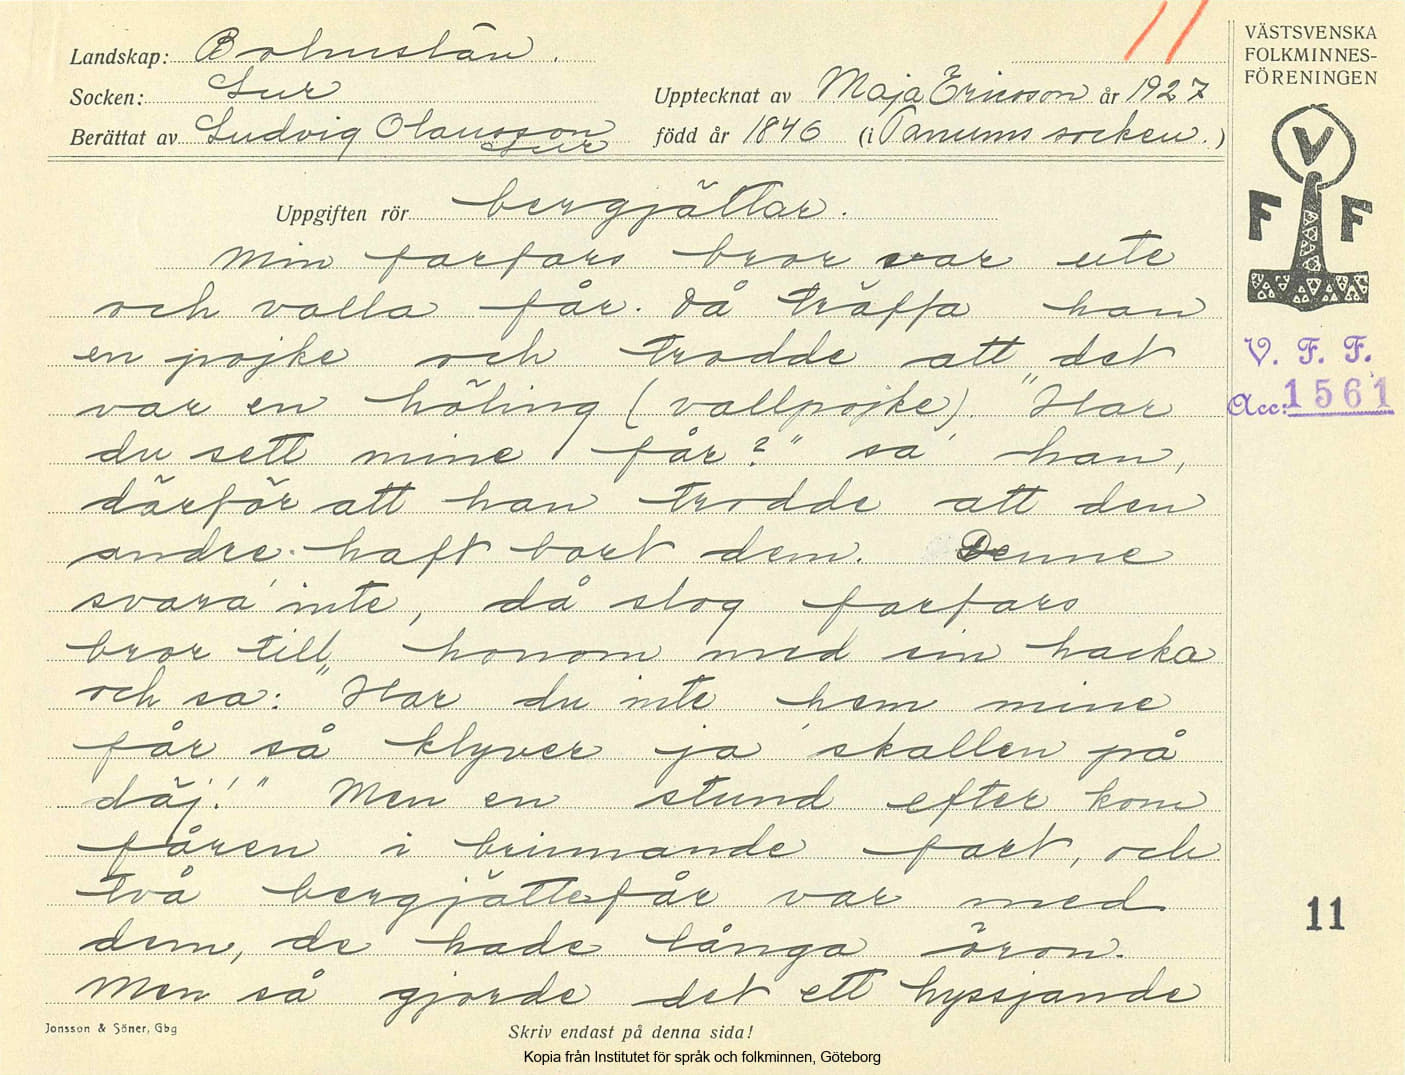 11
Landskap: Bohuslän.
Socken: Lur
Upptecknat av Maja Ericsson år 1927
Berättat av Ludvig Olausson
Lur
född år 1846 (i Tanums socken.)
Uppgiften rör bergjättar.
Min farfars bror var ute
och valla får. Då träffa han
en pojke och trodde att det
var en höling (vallpojke) "Har
du sett mine får?" sa han,
därför att han trodde att den
andre haft bort dem. Denne
svara' inte, då slog farfars
bror till honom med sin hacka
och sa: "Har du inte hem mine
får så klyver ja skallen på
däj!" Men en stund efter kom
fåren i brinnande fart, och
två bergjättefår var med
dem, de hade långa öron.
Men så gjorde det ett hyssjande
VÄSTSVENSKA
FOLKMINNES-
FÖRENINGEN
V
F F
V. F. F.
Acc: 1561
11
Jonsson & Söner, Gbg
Skriv endast på denna sida!
Kopia från Institutet för språk och folkminnen, Göteborg